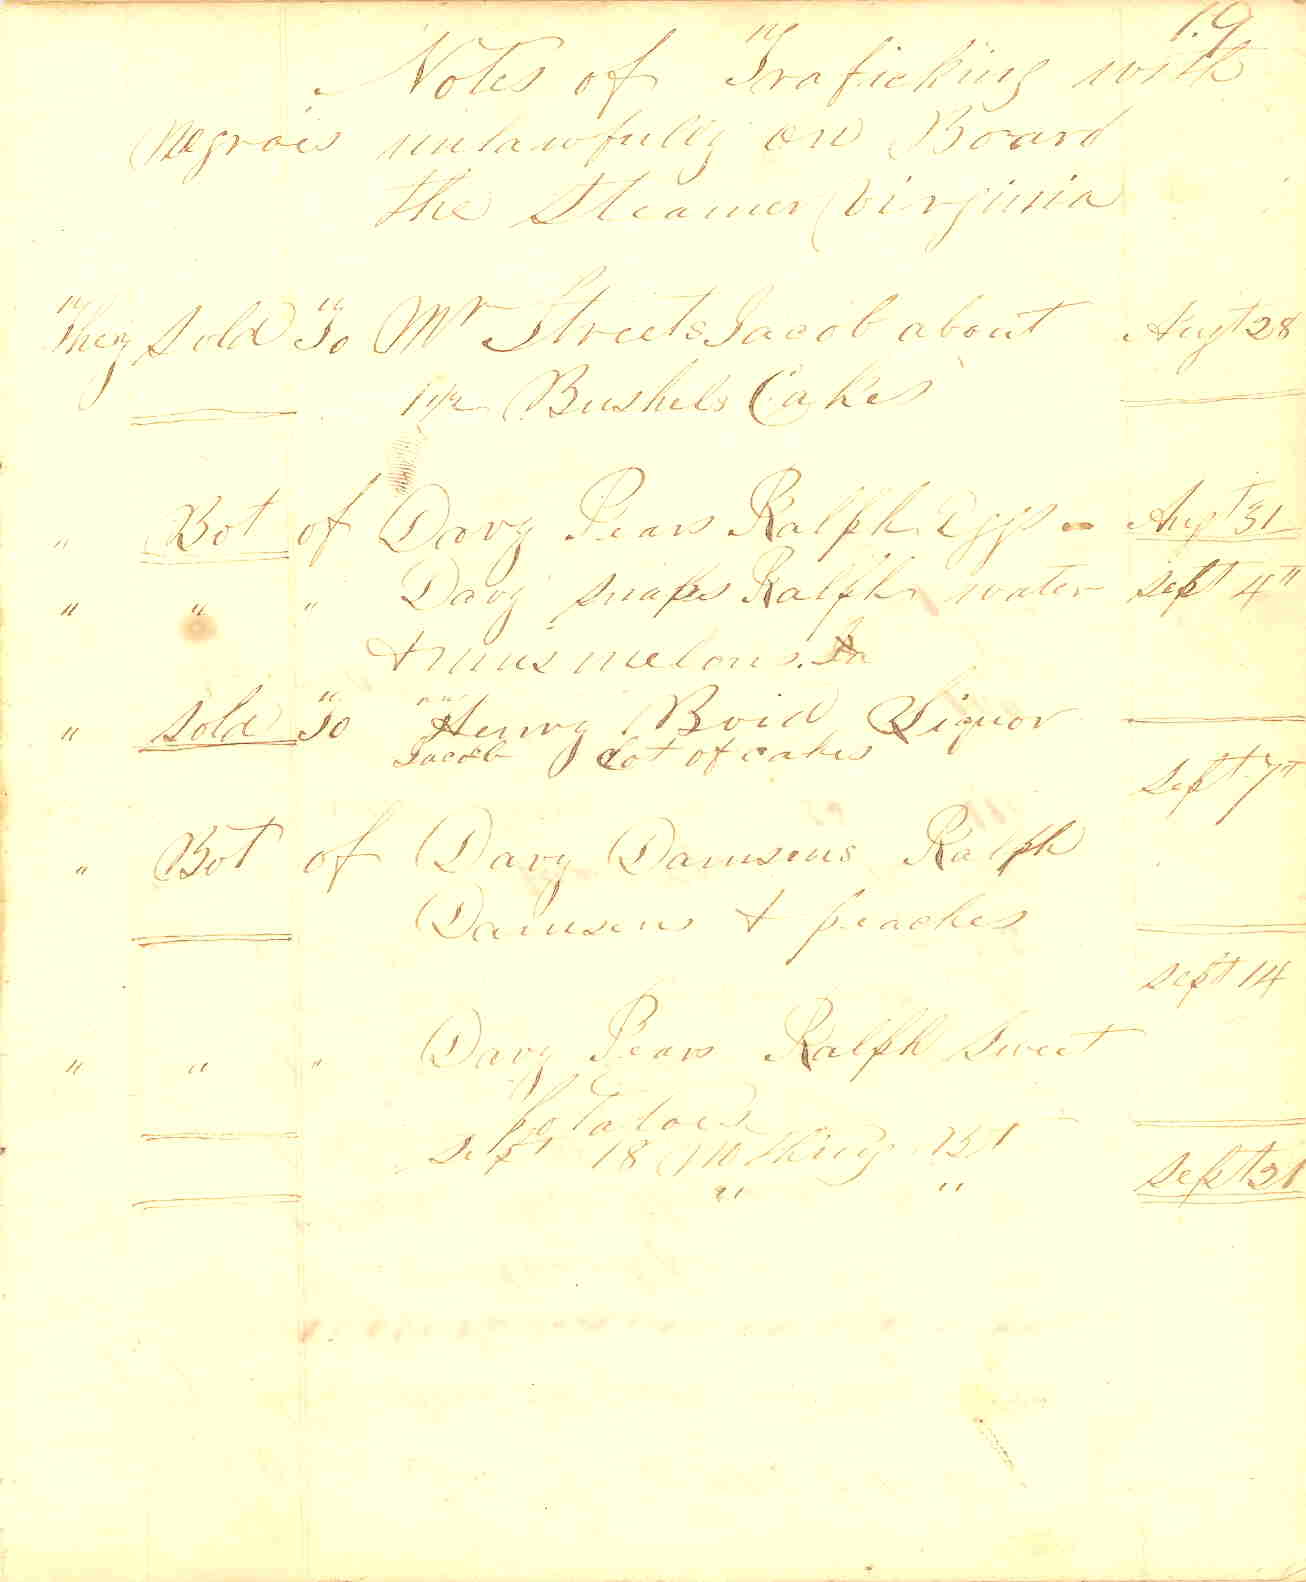 19
Notes of Traficking with
Negroes unlawfully on Board
the Steamer Virginia
They Sold To Mr Streets Jacob about Augt 28
1 1/2 Bushels Cakes
" Bot of Davy Pears Ralph Eggs - Augt 31
" " " Davy snaps Ralph water Sept 4th
& mus melons.
" Sold To Henry Boid Liquor
Jacob Lot of cakes
Sept 7th
" Bot of Davy Damsens Ralph
Damsens & peaches
Sept 14
" " " Davy Pears Ralph Sweet
potatoes
Sept 18 Nothing Bt
" " Sept 21